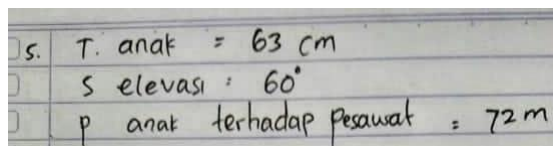 5. T. anak = 63 cm
S elevasi : 60°
p anak terhadap pesawat = 72 m